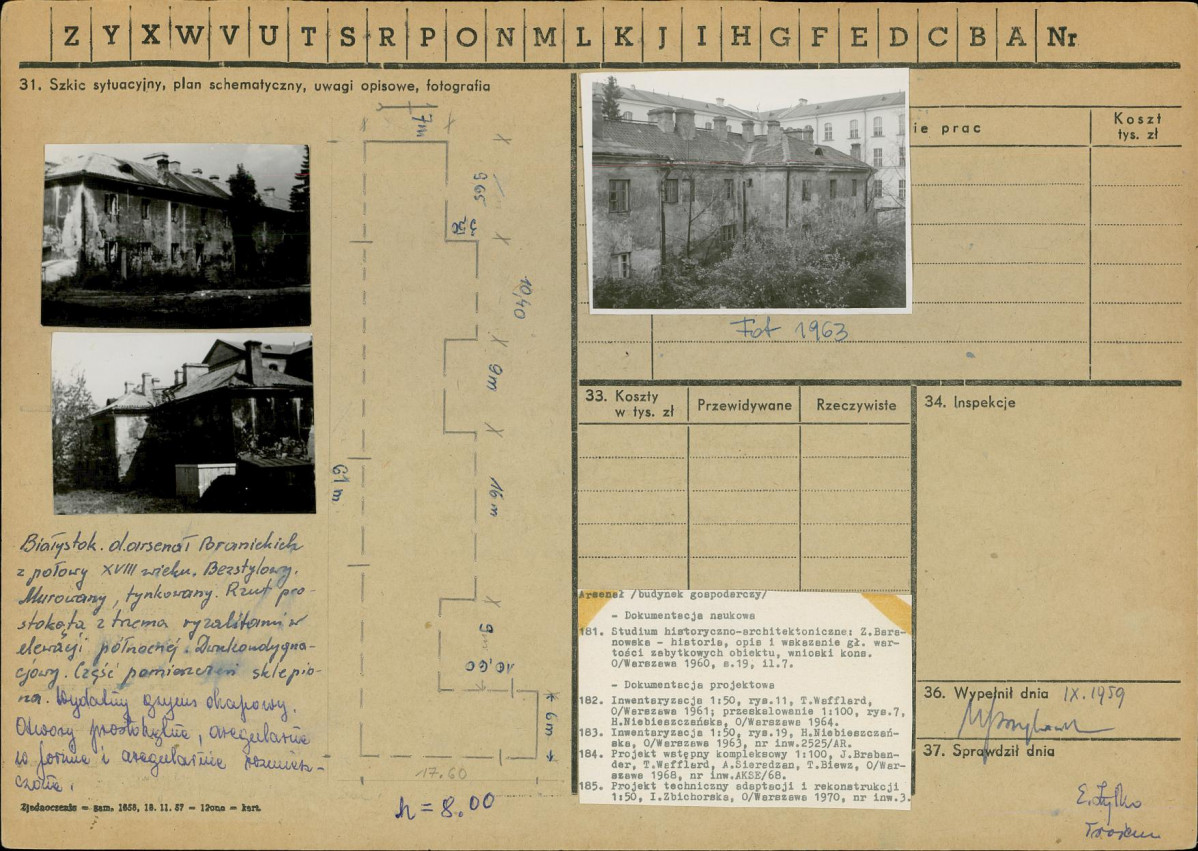 Z Y X W V U T S R P O N M L K J I H G F E D C B A Nr
31. Szkic sytuacyjny, plan schematyczny, uwagi opisowe, fotografia
17m
9.65
3.50
10,40
9m
16 m
61 m
9m
10,60
6m
17.60
h = 8.00
Białystok. d. arsenał Branickich
z połowy XVIII wieku. Bezstylowy.
Murowany, tynkowany. Rzut pro-
stokąta z trzema ryzalitami w
elewacji północnej. Dwukondygna-
cjowy. Część pomieszczeń sklepio-
na. Wydatny gzyms okapowy.
Otwory prostokątne, nieregularne
w formie i nieregularnie rozmiesz-
czone.
Zjednoczenie – zam. 1658, 18. 11. 57 – 12000 – kart.
Fot 1963
ie prac
Koszt
tys. zł
33. Koszty
w tys. zł
Przewidywane
Rzeczywiste
34. Inspekcje
Arsenał /budynek gospodarczy/
- Dokumentacja naukowa
181. Studium historyczno-architektoniczne: Z.Bara-
nowska - historia, opis i wskazanie gł. war-
tości zabytkowych obiektu, wnioski kons.
O/Warszawa 1960, s.19, il.7.
- Dokumentacja projektowa
182. Inwentaryzacja 1:50, rys.11, T.Wafflard,
O/Warszawa 1961; przeskalowanie 1:100, rys.7,
H.Niebieszczańska, O/Warszawa 1964.
183. Inwentaryzacja 1:50, rys.19, H.Niebieszczań-
ska, O/Warszawa 1963, nr inw.2525/AR.
184. Projekt wstępny kompleksowy 1:100, J.Braban-
der, T.Wafflard, A.Sieradzan, T.Biewz, O/War-
szawa 1968, nr inw.AKSE/68.
185. Projekt techniczny adaptacji i rekonstrukcji
1:50, I.Zbichorska, O/Warszawa 1970, nr inw.3.
36. Wypełnił dnia IX.1959
37. Sprawdził dnia